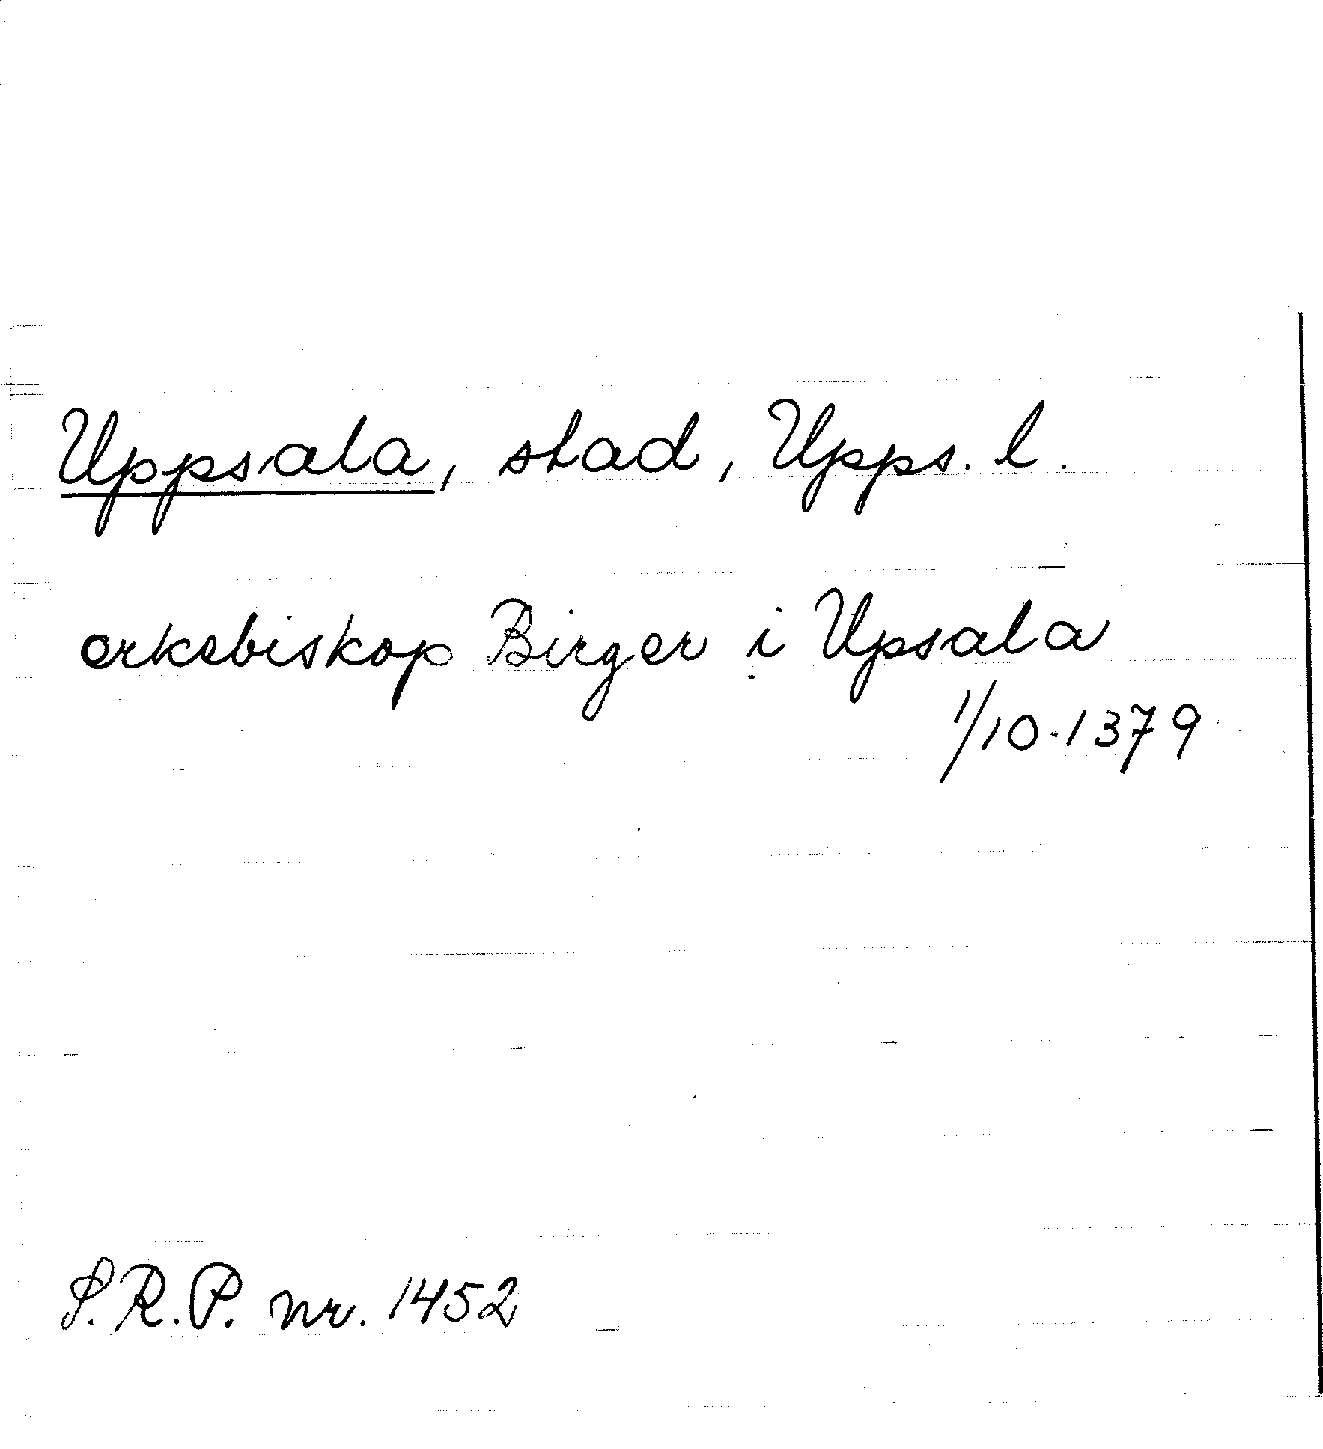 Uppsala, stad, Upps. l.
erkebiskop Birger i Upsala
1/10-1379
S.R.P. nr. 1452